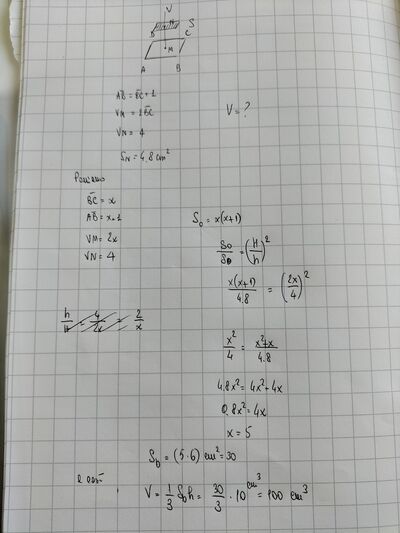 V
D S
C
M
A B
AB = BC + 1
VM = 2BC
VN = 4
SN = 4.8 cm²
V = ?
Poniamo
BC = x
AB = x+1
VM = 2x
VN = 4
S₀ = x(x+1)
(H/h)²
x(x+1)/4.8 = (2x/4)²
h/H = 4/2x = 2/x
x²/4 = x²+x/4.8
4.8x² = 4x²+4x
0.8x² = 4x
x = 5
Sb = (5·6) cm² = 30
V = 1/3 Sb h = 30/3 · 10 cm³ = 100 cm³